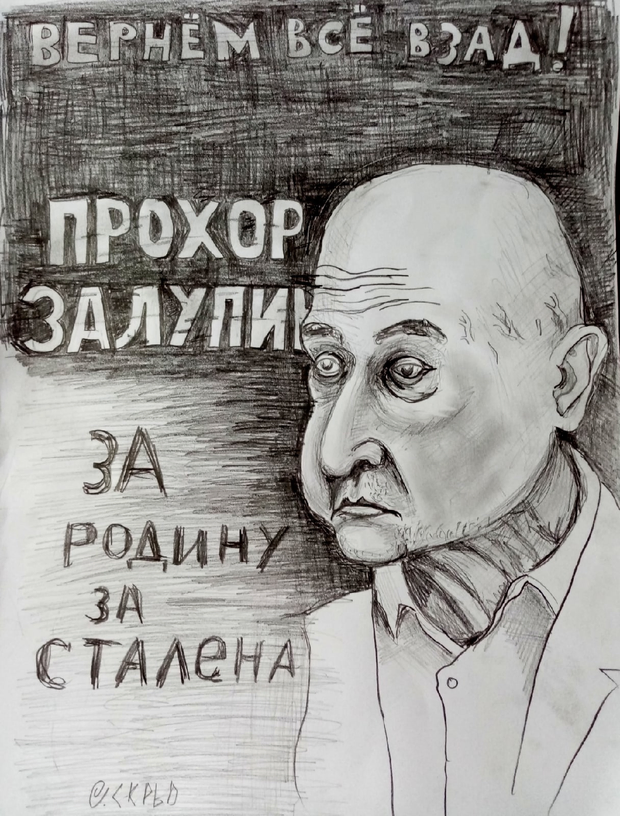 ВЕРНЁМ ВСЁ ВЗАД!
ПРОХОР
ЗАЛУПИ
ЗА
РОДИНУ
ЗА
СТАЛеНА